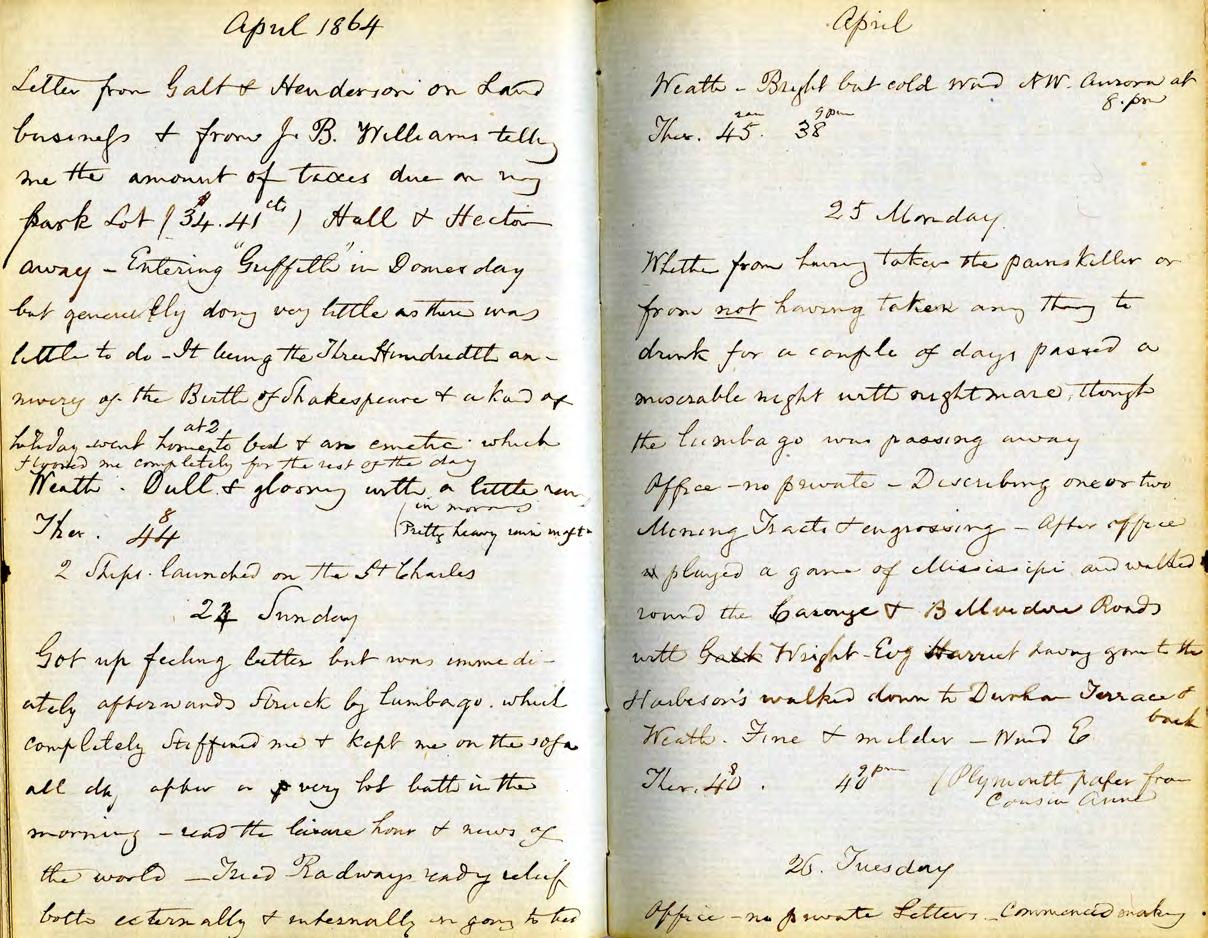 April 1864
Letter from Galt & Henderson on Land
business & from J. B. Williams telling
me the amount of taxes due on my
park Lot ($34.41cts) Hall & Hector
away – Entering "Griffith" in Domesday
but generally doing very little as there was
little to do – It being the Three Hundredth an-
nivery of the Birth of Shakespeare & a kind of
holiday went home at 2 to bed & an emetic which
floored me completely for the rest of the day
Weath. Dull & gloomy with a little rain
(in morng
Ther. 44 8
Pretty heavy rain in aft.
2 Ships launched on the St Charles
24 Sunday
Got up feeling better but was immedi-
ately afterwards struck by lumbago. which
completely stiffened me & kept me on the sofa
all day after a very hot bath in the
morning – read the leisure hour & news of
the world – Tried Radways ready relief
both externally & internally on going to bed
April
Weath – Bright but cold wind NW. Aurora at
8. pm
Ther. 45. 38 9pm
25 Monday
Whether from having taken the pains killer or
from not having taken any thing to
drink for a couple of days passed a
miserable night with nightmare, though
the lumbago was passing away
Office – no private – Describing one or two
Mining Tracts & engrossing – After office
played a game of Mississipi and walked
round the & Bellvedere Roads
with Galt Wright – Evg Harriet having gone to the
Harbeson's walked down to Durham Terrace &
back
Weath. Fine & milder – Wind E
Ther. 40 8. 40 9pm (Plymouth paper from
Cousin Anne
26. Tuesday
Office – no private Letters – Commenced making